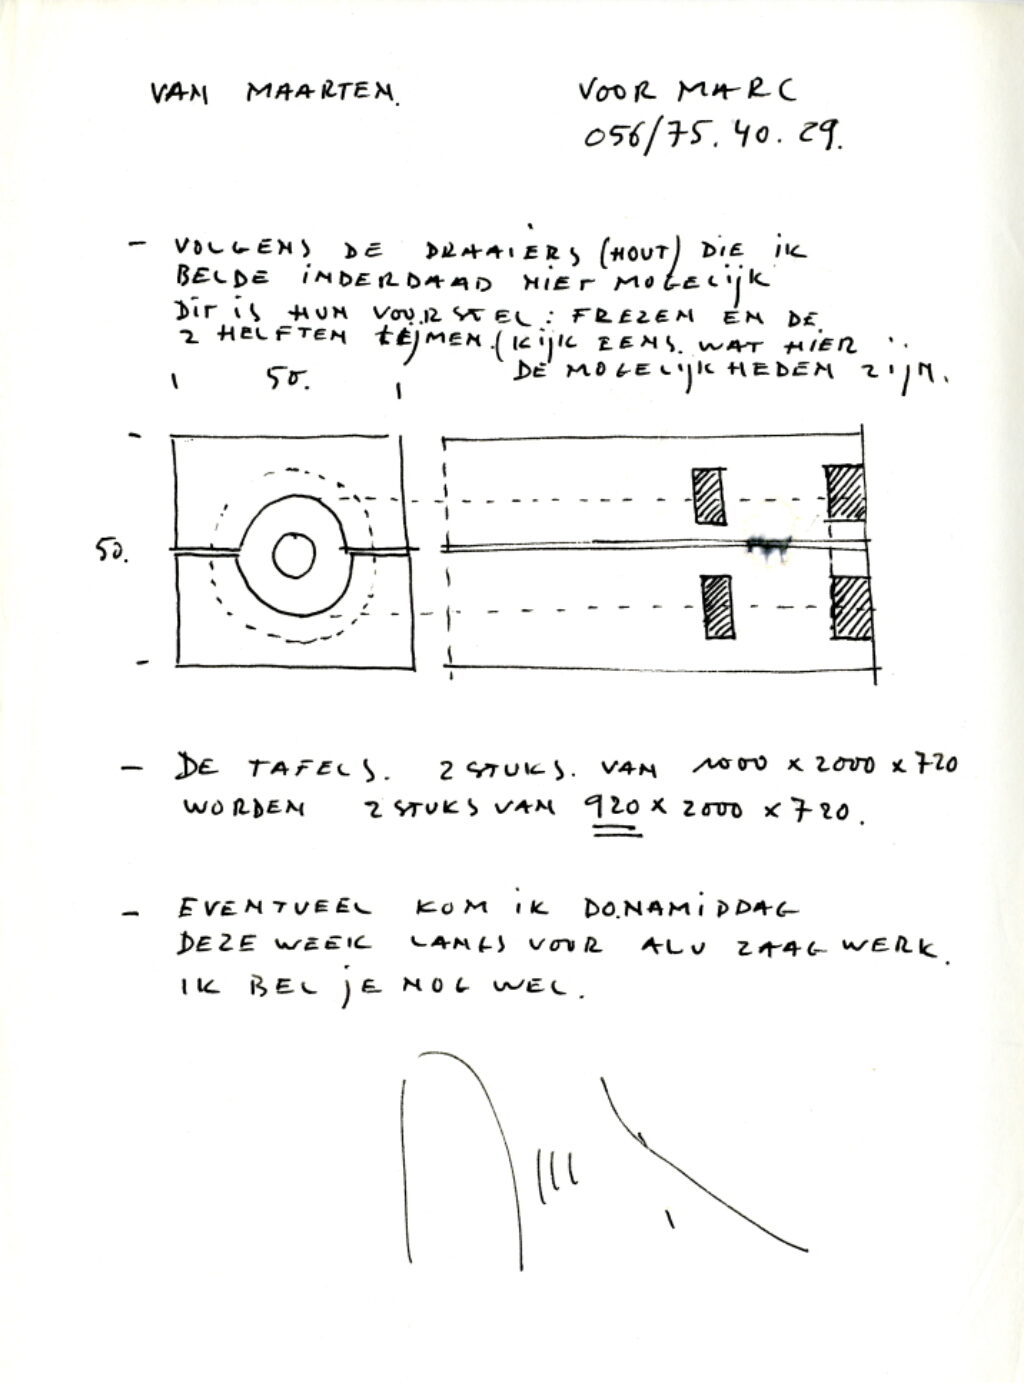 VAN MAARTEN.
VOOR MARC
056/75.40.29.
- VOLGENS DE DRAAIERS (HOUT) DIE IK
BELDE INDERDAAD NIET MOGELIJK
DIT IS HUN VOORSTEL: FREZEN EN DE
2 HELFTEN LEJMEN. (KIJK EENS. WAT HIER
DE MOGELIJKHEDEN ZIJN.
50.
50.
- DE TAFELS. 2 STUKS. VAN 1000 x 2000 x 720
WORDEN 2 STUKS VAN 920 x 2000 x 720.
- EVENTUEEL KOM IK DO.NAMIDDAG
DEZE WEEK LANGS VOOR ALU ZAAGWERK.
IK BEL JE NOG WEL.